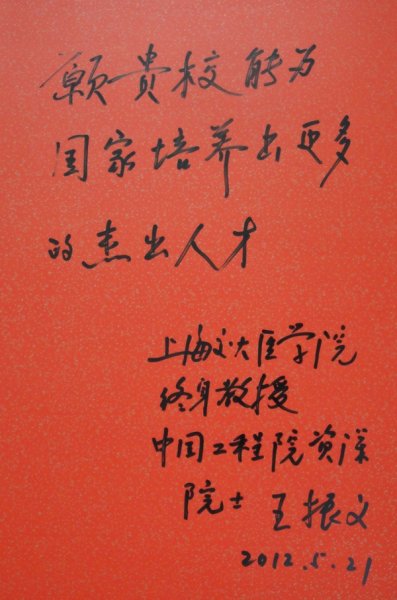 願貴校能为
国家培养出更多
的杰出人才
上海交大医学院
终身教授
中国工程院资深
院士 王振义
2012.5.21